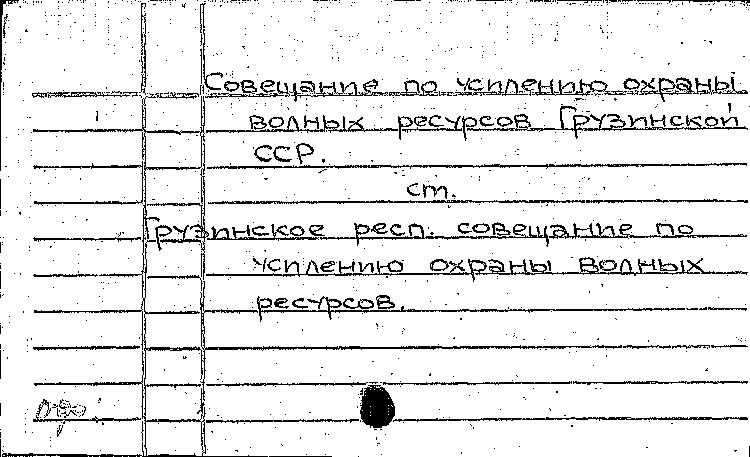 Совещание по усилению охраны
водных ресурсов Грузинской
ССР.
ст.
Грузинское респ. совещание по
усилению охраны водных
ресурсов.